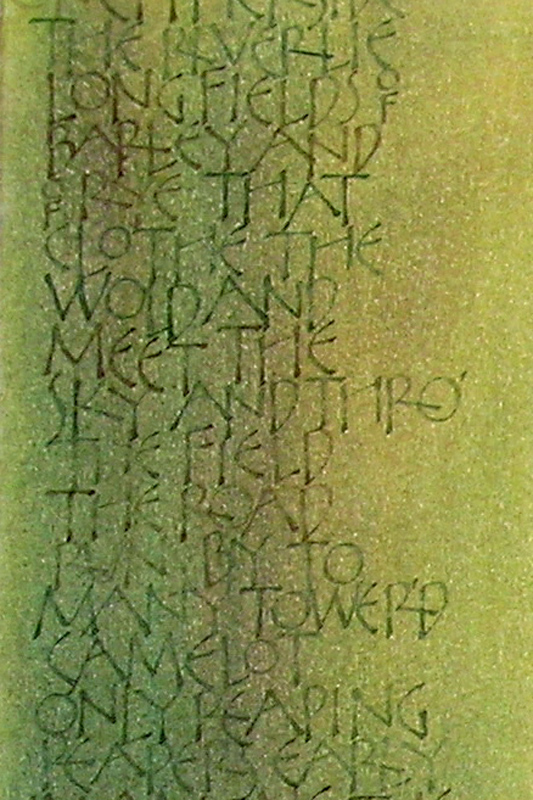 THE RIVER LIE
LONG FIELDS OF
BARLEY AND
OF RYE THAT
CLOTHE THE
WOLD AND
MEET THE
SKY AND THRO'
THE FIELD
THE ROAD
RUNS BY TO
MANY TOWER'D
CAMELOT
ONLY REAPING
REAPERS EARLY